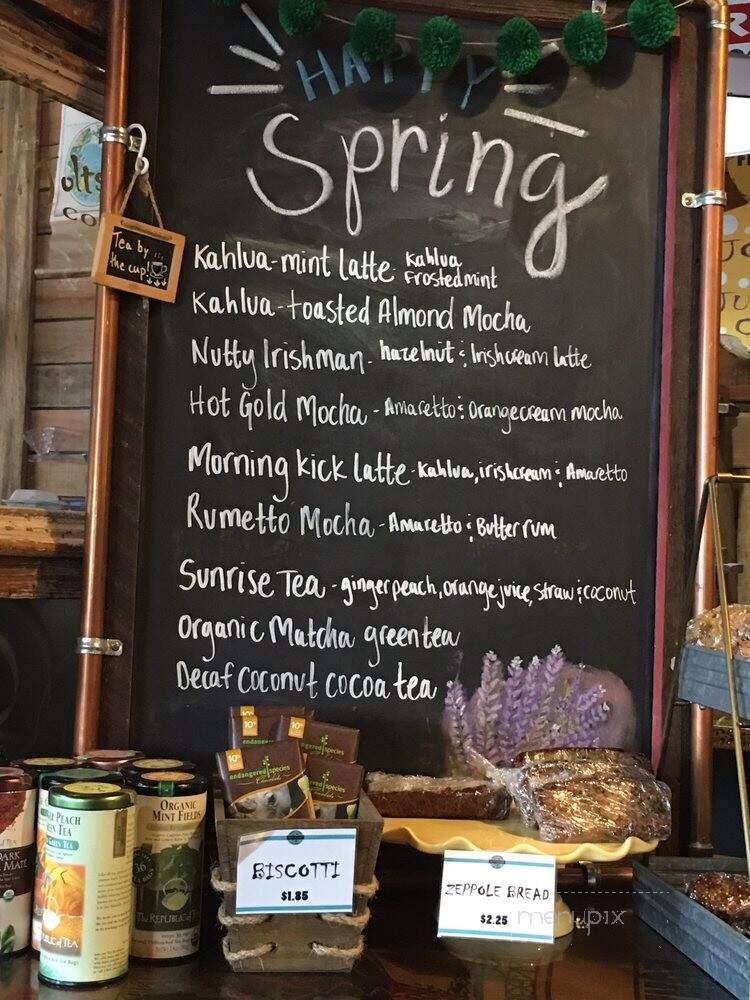 HAPPY
Spring
Tea by
the cup!
Kahlua-mint latte Kahlua
Frosted mint
Kahlua-toasted Almond Mocha
Nutty Irishman - hazelnut & Irishcream latte
Hot Gold Mocha - Amaretto & Orangecream mocha
Morning kick latte - Kahlua, irishcream & Amaretto
Rumetto Mocha - Amaretto & Butter rum
Sunrise Tea - ginger peach, orange juice, straw & coconut
Organic Matcha green tea
Decaf coconut cocoa tea
10%
10%
10%
endangered species
Chocolate
BISCOTTI
$1.85
ZEPPOLE BREAD
$2.25
menupix
ORGANIC
MINT FIELDS
THE REPUBLIC of TEA
PEACH
TEA
REPUBLIC of TEA
DARK
MATE